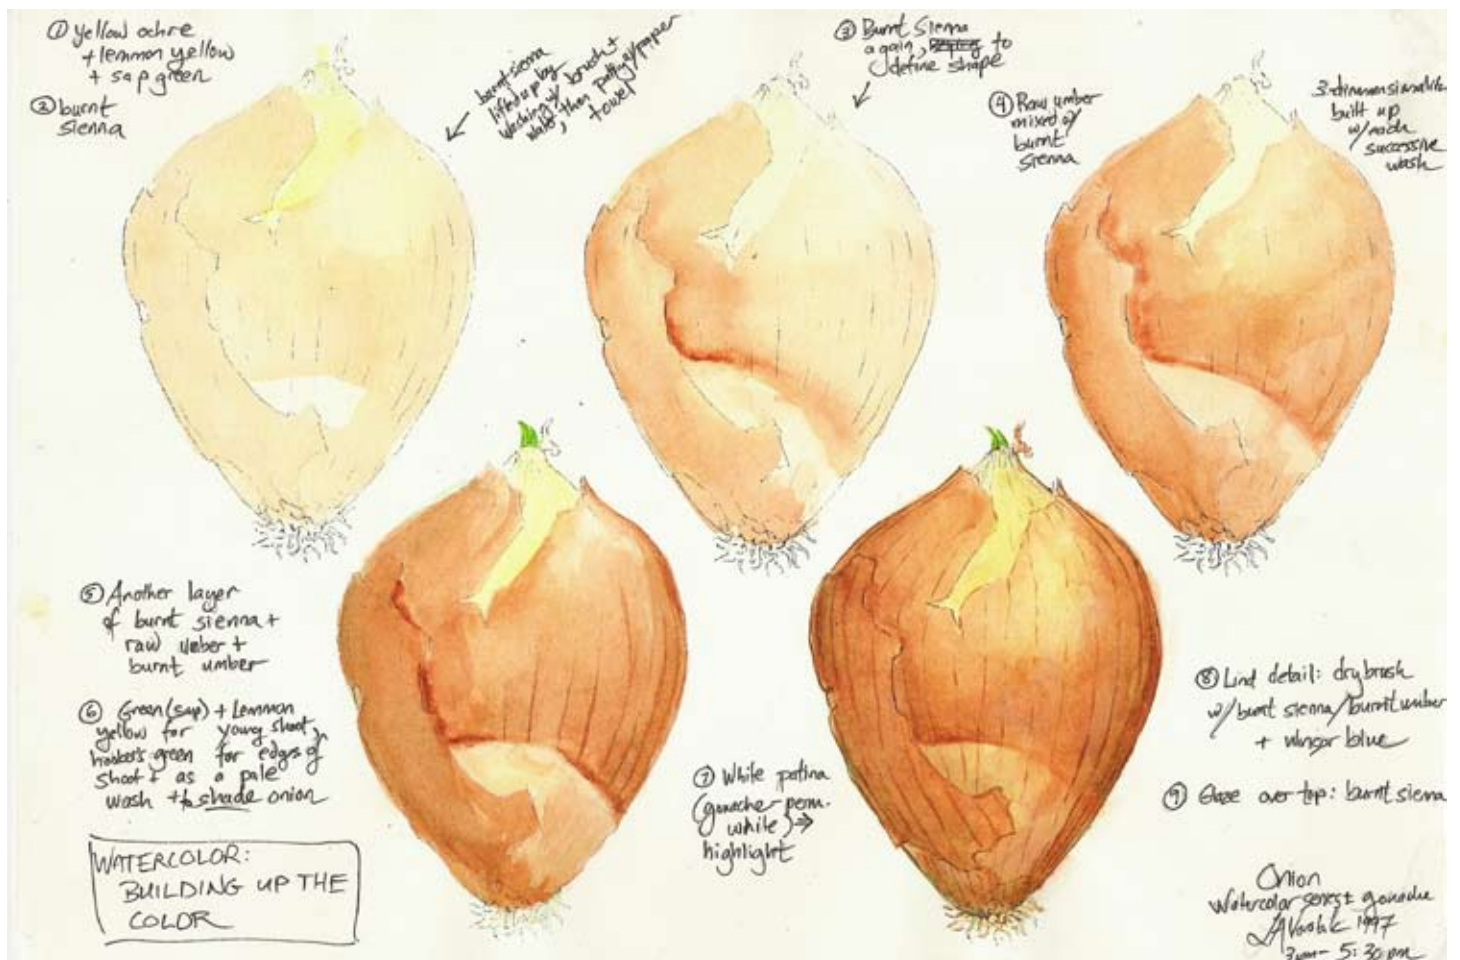 ① Yellow ochre
+ lemmon yellow
+ sap green
② burnt
sienna
burnt sienna
lifted up by
washing w/ brush +
water, then patting w/ paper
towel
③ Burnt Sienna
again, to
define shape
④ Raw umber
mixed w/
burnt
sienna
built up
w/ each
successive
wash
⑤ Another layer
of burnt sienna +
raw umber +
burnt umber
⑥ Green (sap) + Lemmon
yellow for young shoot,
hooker's green for edges of
shoot + as a pale
wash to shade onion
⑦ White patina
(gouache-perm.
white) ⇒
highlight
⑧ Lind detail: drybrush
w/ burnt sienna/burnt umber
+ winsor blue
⑨ Glaze over top: burnt sienna
WATERCOLOR:
BUILDING UP THE
COLOR
Onion
Watercolor series + gouache
1997
3pm - 5:30 pm